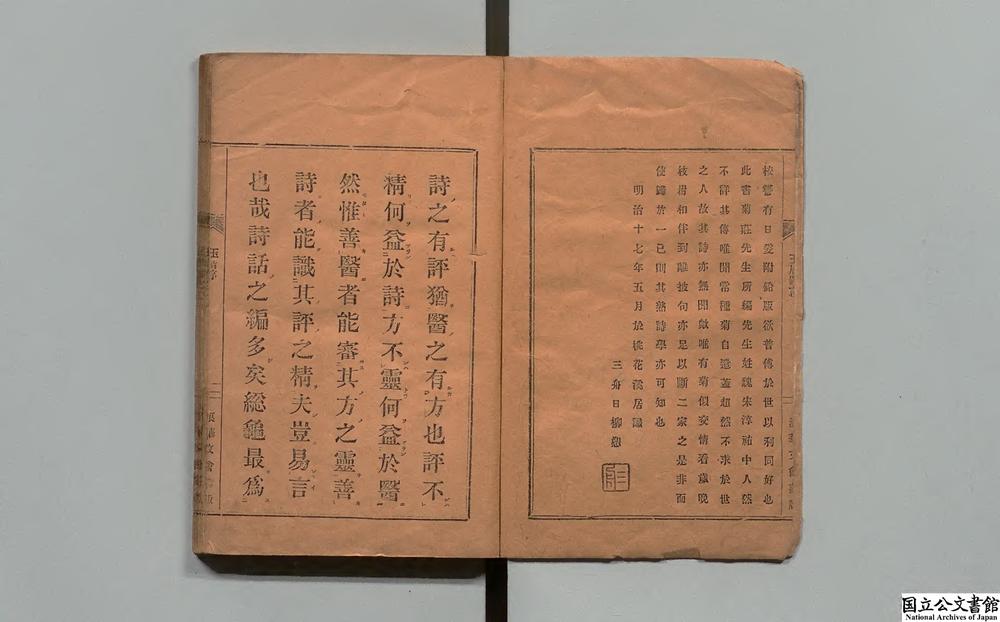 校讐有日受附鉛版欲普傳於世以利同好也
此書菊莊先生所編先生姓魏宋淳祐中人然
不詳其傳唯聞常種菊自遣蓋超然不求於世
之人故其詩亦無聞歟唯有菊似交情看歲晚
枝搘相伴到離披句亦足以斷二家之是非而
使歸於一已則其熟詩學亦可知也
明治十七年五月於桃花溪居識
三舟日柳
詩之有評猶醫之有方也評不
精何益於詩方不靈何益於醫
然惟善醫者能審其方之靈善
詩者能識其評之精夫豈易言
也哉詩話之編多矣総龜最爲
玉屑序
二
国立公文書館
National Archives of Japan